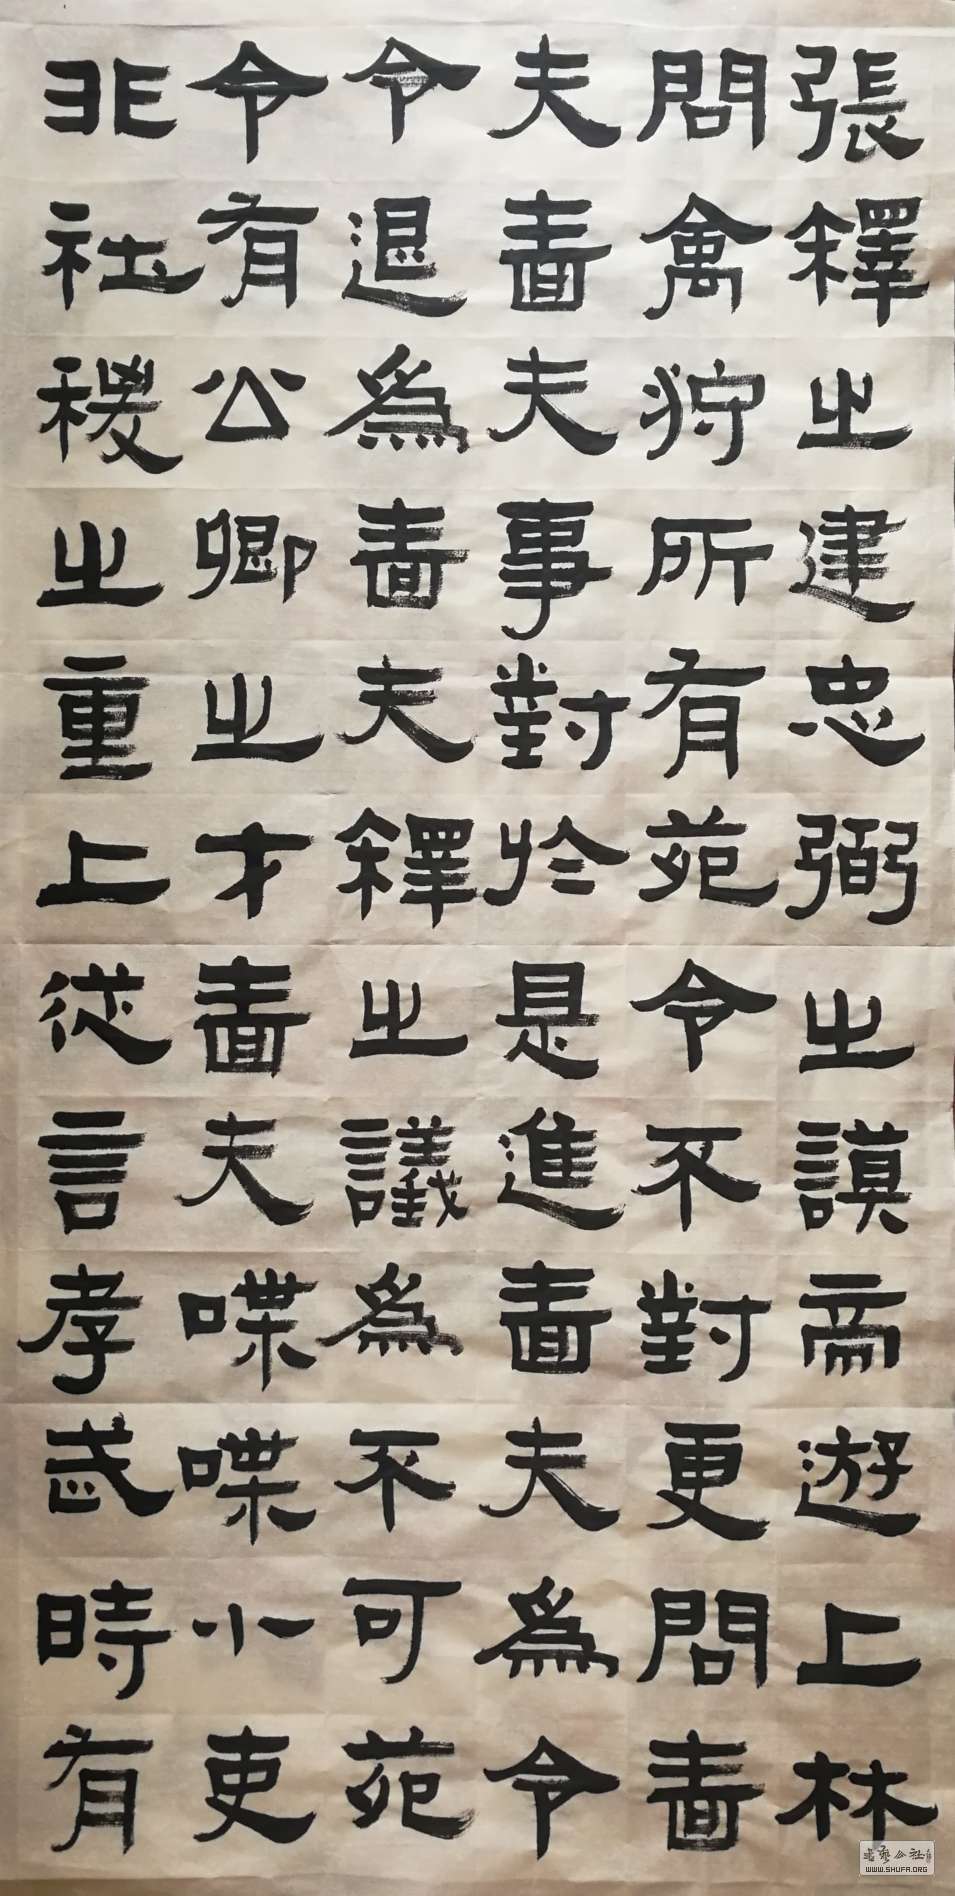 張釋之建忠弼之謨帝遊上林
問禽狩所有苑令不對更問嗇
夫嗇夫事對於是進嗇夫為令
令退為嗇夫釋之議為不可苑
令有公卿之才嗇夫喋喋小吏
非社稷之重上從言孝武時有
書藝公社
WWW.SHUFA.ORG